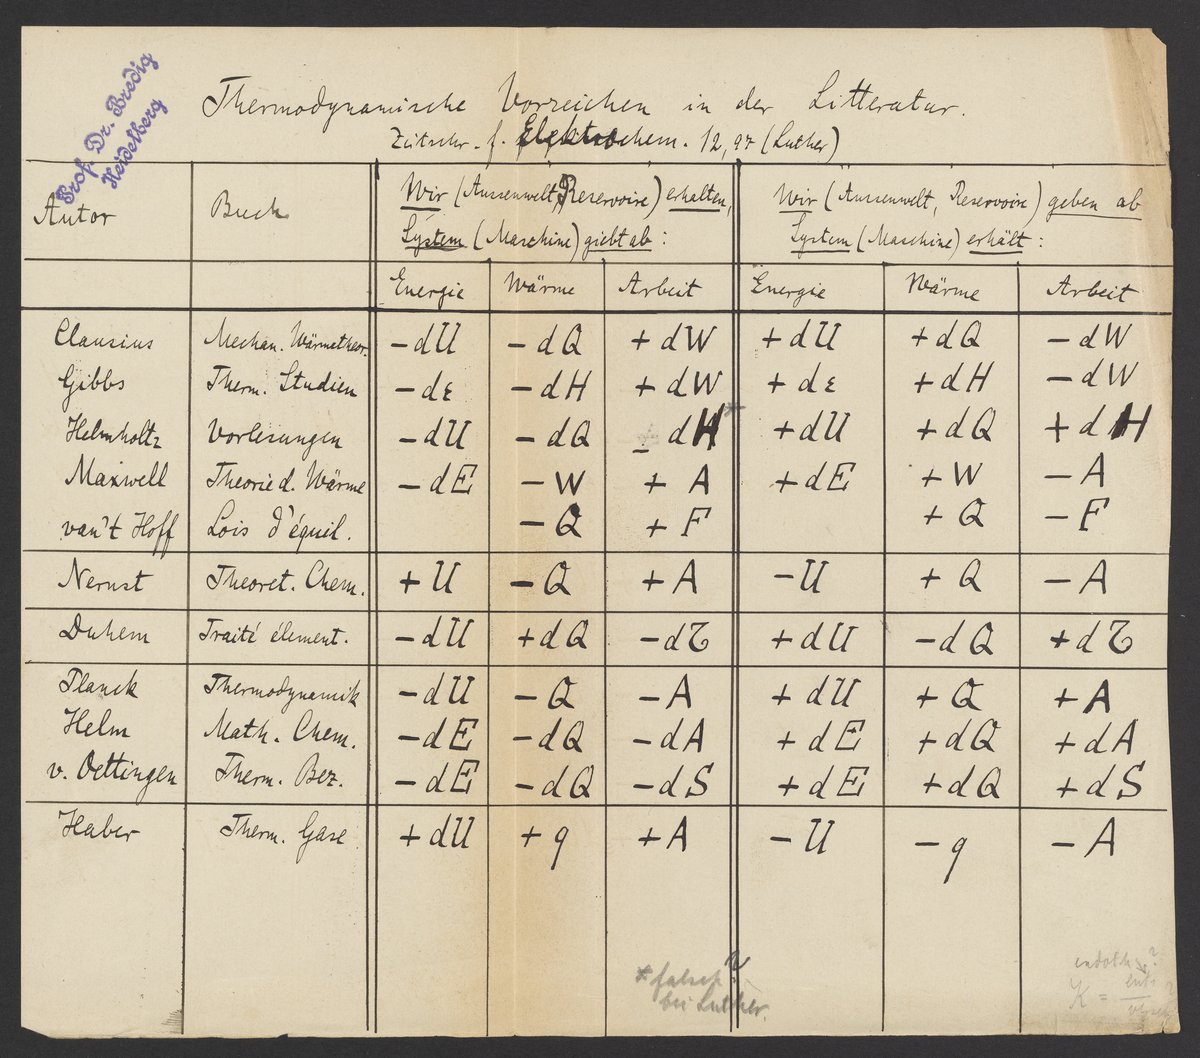 Prof. Dr. Bredig
Heidelberg
Thermodynamische Vorzeichen in der Litteratur.
Zeitschr. f. Elektrochem. 12, 97 (Luther)
Autor Buch Wir (Aussenwelt, Reservoire) erhalten, Wir (Aussenwelt, Reservoire) geben ab
System (Maschine) giebt ab: System (Maschine) erhält:
Energie Wärme Arbeit Energie Wärme Arbeit
Clausius Mechan. Wärmetheor. - dU - dQ + dW + dU + dQ - dW
Gibbs Therm. Studien - dε - dH + dW + dε + dH - dW
Helmholtz Vorlesungen - dU - dQ - dH* + dU + dQ + dH
Maxwell Theorie d. Wärme - dE - W + A + dE + W - A
van't Hoff Lois d'équil. - Q + F + Q - F
Nernst Theoret. Chem. + U - Q + A - U + Q - A
Duhem Traité élement. - dU + dQ - dT + dU - dQ + dT
Planck Thermodynamik - dU - Q - A + dU + Q + A
Helm Math. Chem. - dE - dQ - dA + dE + dQ + dA
v. Oettingen Therm. Bez. - dE - dQ - dS + dE + dQ + dS
Haber Therm. Gase + dU + q + A - U - q - A
* falsch?
bei Luther.
K =